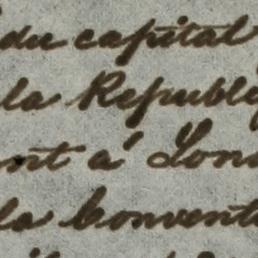 du capital
la Republi
nt a' Lon
la Convent